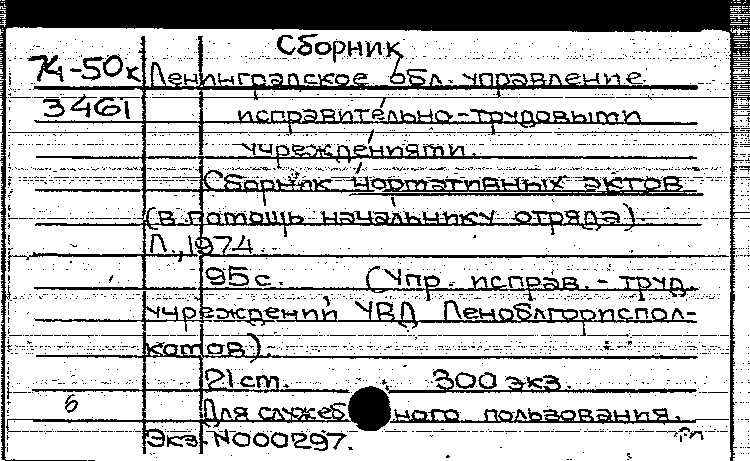 Сборник
74-50к Ленинградское обл. управление
3461 исправительно-трудовыми
учреждениями.
Сборник нормативных актов
(в помощь начальнику отряда).
Л., 1974.
95 с. (Упр. исправ. - труд.
учреждений УВД Леноблгориспол-
комов).
21 ст. 300 экз.
6 Для служебного пользования.
Экз. N000297.